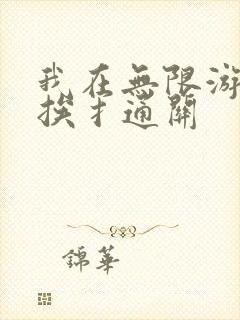 我在無限游
挨扌通關
錦華